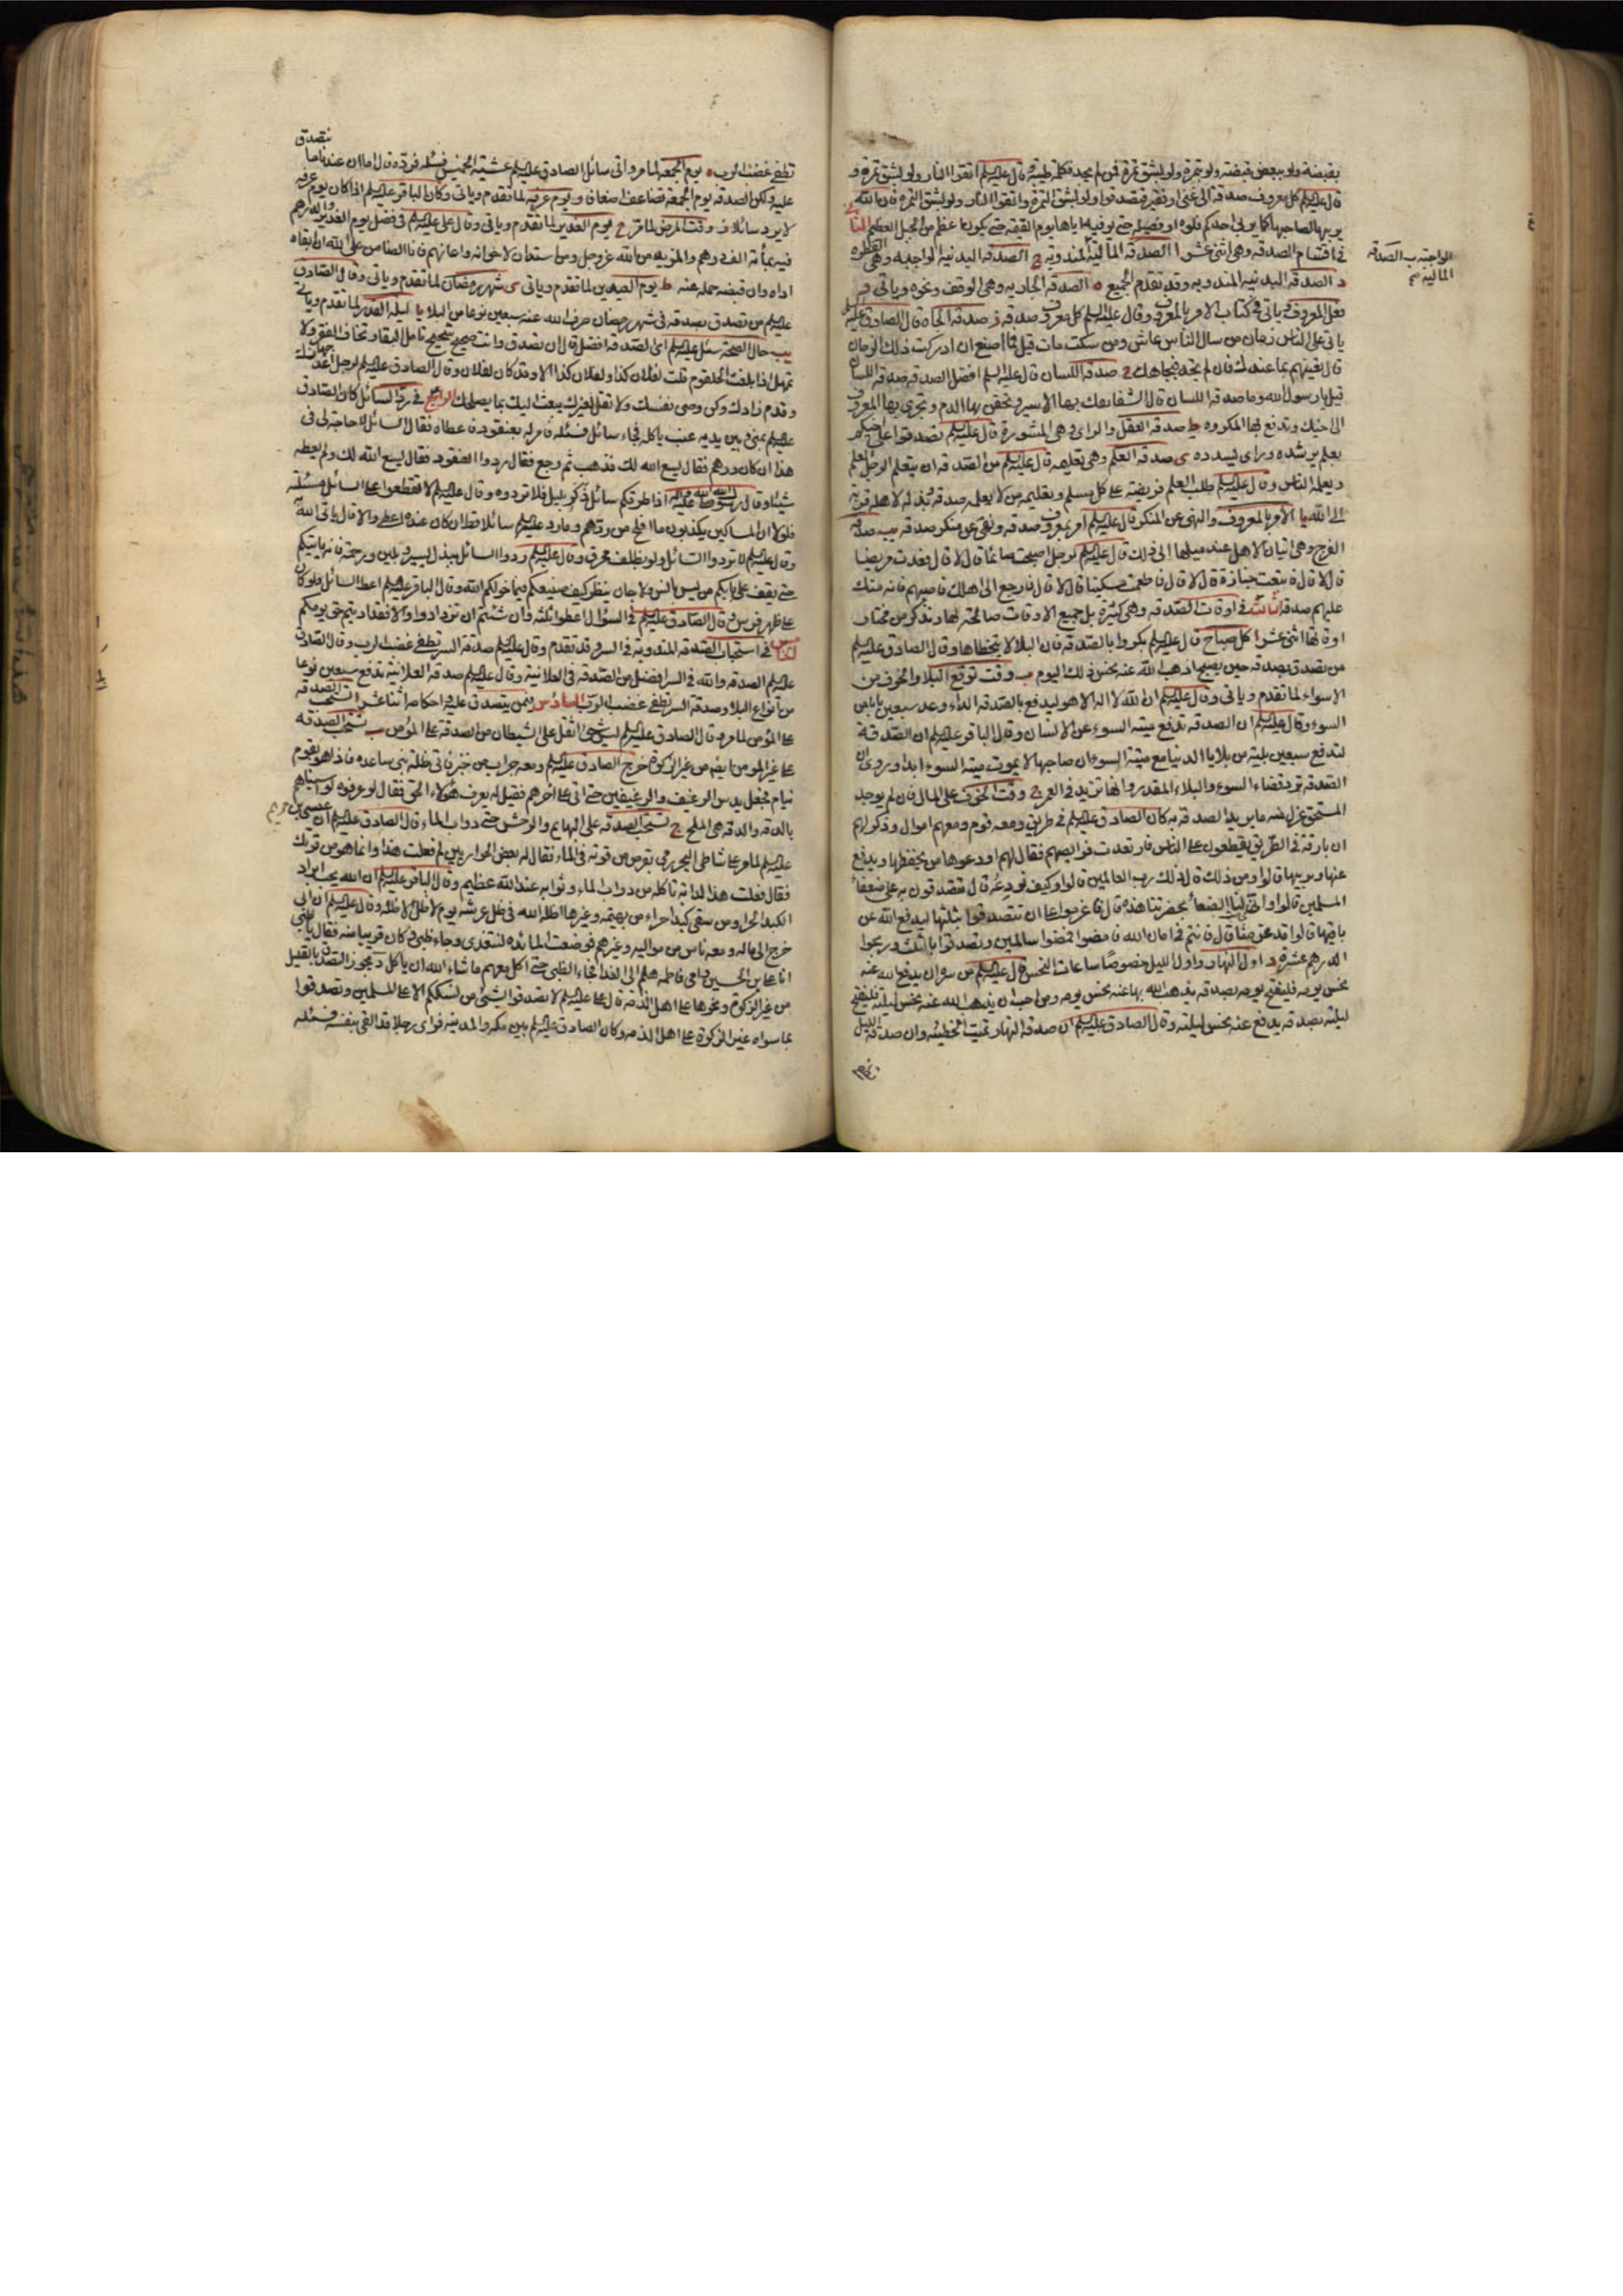 بقبضة ولو ببعض قبضة ولو بتمرة ولو بشق تمرة فمن لم يجد فكلمة طيبة وقال عليه السلم اتقوا النار ولو بشق تمرة و
قال عليه السلم كل معروف صدقة الى غنى او فقير فتصدقوا ولو بشق التمرة واتقوا النار ولو بشق التمرة فان الله
يربيها لصاحبها كما يربى احدكم فلوه او فصيله حتى يوفيه اياها يوم القيمة حتى يكون اعظم من الجبل العظيم الثانى
فى اقسام الصدقة وهى اثنى عشر ا الصدقة المالية المندوبة ج الصدقة البدنية الواجبة وهى الفطرة
الواجبة ب الصدقة
المالية صح
د الصدقة البدنية المندوبة وقد تقدم الجميع ه الصدقة الجارية وهى الوقف ونحوه وياتى و
فعل المعروف وياتى فى كتاب الامر بالمعروف وقال عليه السلم كل معروف صدقة ز صدقة الجاه قال الصادق عليه السلم
ياتى على الناس زمان من سال الناس عاش ومن سكت مات قيل فما اصنع ان ادركت ذلك الزمان
قال تعينهم بما عندك فان لم تجد فبجاهك ح صدقة اللسان قال عليه السلم افضل الصدقة صدقة اللسان
قيل يا رسول الله وما صدقة اللسان قال الشفاعة تفك بها الاسير وتحقن بها الدم وتجرى بها المعروف
الى اخيك وتدفع بها المكروه ط صدقة العقل والراى وهى المشورة قال عليه السلم تصدقوا على اخيكم
بعلم يرشده وراى يسدده ى صدقة العلم وهى تعليمه قال عليه السلم من الصدقة ان يتعلم الرجل العلم
ويعلمه الناس وقال عليه السلم طلب العلم فريضة على كل مسلم وتعليمه من لا يعلمه صدقة وبذله لاهله قربة
الى الله يا الامر بالمعروف والنهى عن المنكر قال عليه السلم امر بمعروف صدقة ونهى عن منكر صدقة يب صدقة
الفرج وهى اتيان الاهل عند ميلها الى ذلك قال عليه السلم لرجل اصبحت صائما قال لا قال فعدت مريضا
قال لا قال فاتبعت جنازة قال لا قال فاطعمت مسكينا قال لا قال فارجع الى اهلك فاصبهم فانه منك
عليهم صدقة الثالث فى اوقات الصدقة وهى كثيرة بل جميع الاوقات صالحة لها ونذكر من مختار
اوقاتها اثنى عشر ا كل صباح قال عليه السلم بكروا بالصدقة فان البلا لا يتخطاها وقال الصادق عليه السلم
من تصدق بصدقة حين يصبح اذهب الله عنه نحس ذلك اليوم ب وقت توقع البلا والخوف من
الاسواء لما تقدم وياتى وقال عليه السلم ان الله لا اله الا هو ليدفع بالصدقة الداء وعد سبعين بابا من
السوء وقال عليه السلم ان الصدقة تدفع ميتة السوء عن الانسان وقال الباقر عليه السلم ان الصدقة
لتدفع سبعين بلية من بلايا الدنيا مع ميتة السوء ان صاحبها لا يموت ميتة السوء ابدا وروى ان
الصدقة ترد قضاء السوء والبلاء المقدر وانها تزيد فى العمر ج وقت الخوف على المال فان لم يوجد
المستحق عزل منه ما يريد الصدقة به كان الصادق عليه السلم فى طريق ومعه قوم ومعهم اموال وذكر لهم
ان بارقة فى الطريق يقطعون على الناس فارتعدت فرائصهم فقال لهم اودعوها من يحفظها ويدفع
عنها ويربيها قالوا ومن ذلك قال ذلك رب العالمين قالوا وكيف نودعه قال تتصدقون به على ضعفاء
المسلمين قالوا وانى لنا الضعفاء بحضرتنا هذه قال فاعزموا على ان تتصدقوا بثلثها ليدفع الله عن
باقيها قالوا قد عزمنا قال فانتم فى امان الله فامضوا فمضوا سالمين وتصدقوا بالثلث وربحوا
الدرهم عشرة د اول النهار واول الليل خصوصا ساعات النحس قال عليه السلم من سره ان يدفع الله عنه
نحس يومه فليفتتح يومه بصدقة يذهب الله بها عنه نحس يومه ومن احب ان يذهب الله عنه نحس ليلته فليفتتح
ليلته بصدقة يدفع عنه نحس ليلته وقال الصادق عليه السلم ان صدقة النهار تميت الخطيئة وان صدقة الليل
تطفى غضب الرب ه يوم الجمعة لما مر واتى سائل الصادق عليه السلم عشية الخميس فسئله فرده قال اما ان عندنا ما نتصدق
عليه ولكن الصدقة يوم الجمعة تضاعف اضعافا و يوم عرفة لما تقدم وياتى وكان الباقر عليه السلم اذا كان يوم عرفة
لا يرد سائلا ز وقت المرض لما مر ح يوم الغدير لما تقدم وياتى وقال على عليه السلم فى فضل يوم الغدير والدرهم
فيه بمأة الف درهم والمزيد من الله عز وجل ومن استدان لاخوانه واعانهم فانا الضامن على الله ان ابقاه
اداه وان قبضه حمله عنه ط يوم العيدين لما تقدم وياتى ى شهر رمضان لما تقدم وياتى وقال الصادق
عليه السلم من تصدق بصدقة فى شهر رمضان صرف الله عنه سبعين نوعا من البلا يا ليلة القدر لما تقدم وياتى
يب حال الصحة سئل عليه السلم اى الصدقة افضل قال ان تصدق وانت صحيح شحيح تامل البقا وتخاف الفقر ولا
تمهل اذا بلغت الحلقوم قلت لفلان كذا ولفلان كذا الا وقد كان لفلان وقال الصادق عليه السلم لرجل اعد جهازك
وقدم زادك وكن وصى نفسك ولا تقل لغيرك يبعث اليك بما يصلحك الرابع فى رد السائل كان الصادق
عليه السلم بمنى وبين يديه عنب ياكله فجاء سائل فسئله فامر له بعنقود فاعطاه فقال السائل لا حاجة لى فى
هذا ان كان درهم فقال يسع الله لك فذهب ثم رجع فقال ردوا العنقود فقال يسع الله لك ولم يعطه
شيئا وقال رسول الله صلى الله عليه واله اذا طرقكم سائل ذكر بليل فلا تردوه وقال عليه السلم لا تقطعوا على السائل مسئلته
فلولا ان المساكين يكذبون ما افلح من ردهم وما رد عليه السلم سائلا قط ان كان عنده اعطى والا قال ياتى الله به
وقال عليه السلم لا تردوا السائل ولو بظلف محرق وقال عليه السلم ردوا السائل ببذل يسير وبلين ورحمة فانه ياتيكم
حتى يقف على بابكم من ليس بانس ولا جان ينظر كيف صنيعكم فيما خولكم الله وقال الباقر عليه السلم اعط السائل ولو كان
على ظهر فرس وقال الصادق عليه السلم فى السؤال اطعموا ثلثة وان شئتم ان تزدادوا والا فقد اديتم حق يومكم
الخامس فى استحباب الصدقة المندوبة فى السر وقد تقدم وقال عليه السلم صدقة السر تطفى غضب الرب وقال الصادق
عليه السلم الصدقة والله فى السر افضل من الصدقة فى العلانية وقال عليه السلم صدقة العلانية تدفع سبعين نوعا
من انواع البلاء وصدقة السر تطفى غضب الرب السادس فيمن يتصدق عليه واحكامه اثنا عشر ا تستحب الصدقة
على المؤمن لما مر وقال الصادق عليه السلم ليس شىء اثقل على الشيطان من الصدقة على المؤمن ب تستحب الصدقة
على غير المؤمن ايضا من غير الزكوة خرج الصادق عليه السلم ومعه جراب من خبز فاتى ظلة بنى ساعدة فاذا هو بقوم
نيام فجعل يدس الرغيف والرغيفين حتى اتى على اخرهم فقيل له يعرف هؤلاء الحق فقال لو عرفوه لواسيناهم
بالدقة والدقة هى الملح ج تستحب الصدقة على البهايم والوحش حتى دواب الماء قال الصادق عليه السلم ان عيسى بن مريم
عليه السلم لما مر على شاطى البحر رمى بقرص من قوته فى الماء فقال له بعض الحواريين لم فعلت هذا وانما هو من قوتك
فقال فعلت هذا لدابة تاكله من دواب الماء وثوابه عند الله عظيم وقال الباقر عليه السلم ان الله يحب ابراد
الكبد الحرى ومن سقى كبدا حراء من بهيمة وغيرها اظله الله فى ظل عرشه يوم لا ظل الا ظله وقال عليه السلم ان ابى
خرج الى ماله ومعه ناس من مواليه وغيرهم فوضعت المائدة لنتغدى وجاء ظبى وكان قريبا منه فقال يا ظبى
انا على بن الحسين وامى فاطمة هلم الى الغدا فجاء الظبى حتى اكل معهم ما شاء الله ان ياكل د تجوز الصدقة بالقليل
من غير الزكوة ونحوها على اهل الذمة قال على عليه السلم لا تصدقوا بشىء من نسككم الا على المسلمين وتصدقوا
بما سواه غير الزكوة على اهل الذمة وكان الصادق عليه السلم بين مكة والمدينة فراى رجلا قد القى بنفسه فسئله